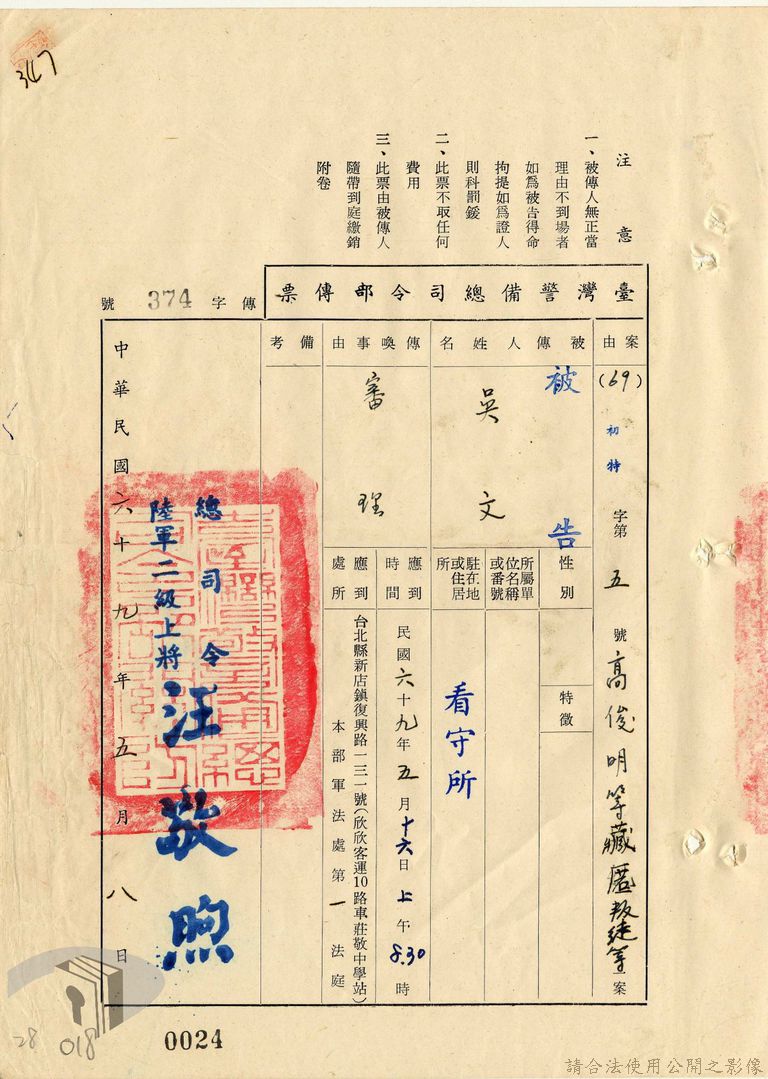 347
注意
一、被傳人無正當
理由不到場者
如爲被告得命
拘提如爲證人
則科罰鍰
二、此票不取任何
費用
三、此票由被傳人
隨帶到庭繳銷
附卷
臺灣警備總司令部傳票
傳字 374 號
案由
(69)初特字第五號高俊明等藏匿叛徒等案
被傳人姓名
被告
吳文
性別
特徵
所屬單
位名稱
或番號
駐在地
或住居
所
看守所
傳喚事由
審理
應到
時間
民國六十九年五月十六日上午8.30時
應到
處所
台北縣新店鎮復興路一三一號(欣欣客運10路車莊敬中學站)
本部軍法處第一法庭
備考
總司令
陸軍二級上將汪敬煦
中華民國六十九年五月八日
28
018
0024
請合法使用公開之影像